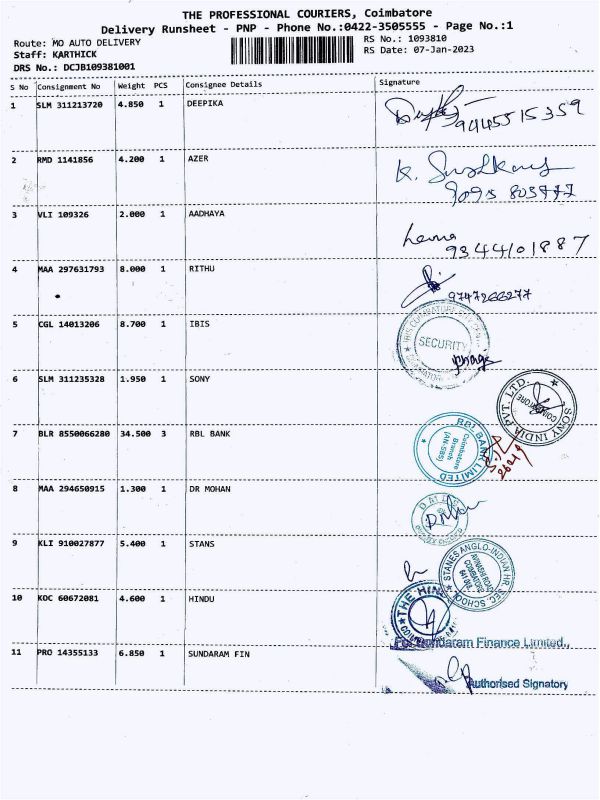 THE PROFESSIONAL COURIERS, Coimbatore
Delivery Runsheet - PNP - Phone No.:0422-3505555 - Page No.:1
Route: MO AUTO DELIVERY
Staff: KARTHICK
DRS No.: DCJB109381001
RS No.: 1093810
RS Date: 07-Jan-2023
S No Consignment No Weight PCS Consignee Details Signature
1 SLM 311213720 4.850 1 DEEPIKA
9445515359
2 RMD 1141856 4.200 1 AZER
9095 803777
3 VLI 109326 2.000 1 AADHAYA
9344101887
4 MAA 297631793 8.000 1 RITHU
9747266277
5 CGL 14013206 8.700 1 IBIS
SECURITY
6 SLM 311235328 1.950 1 SONY
SONY INDIA PVT. LTD.
COIMBATORE
7 BLR 8550066280 34.500 3 RBL BANK
RBL BANK LIMITED
Coimbatore
Branch
(AN-585)
8 MAA 294650915 1.300 1 DR MOHAN
9 KLI 910027877 5.400 1 STANS
STANES ANGLO-INDIAN HR. SEC. SCHOOL
AVINASHI ROAD
COIMBATORE
641 018
10 KOC 60672081 4.600 1 HINDU
THE HINDU
11 PRO 14355133 6.850 1 SUNDARAM FIN
For Sundaram Finance Limited.,
Authorised Signatory